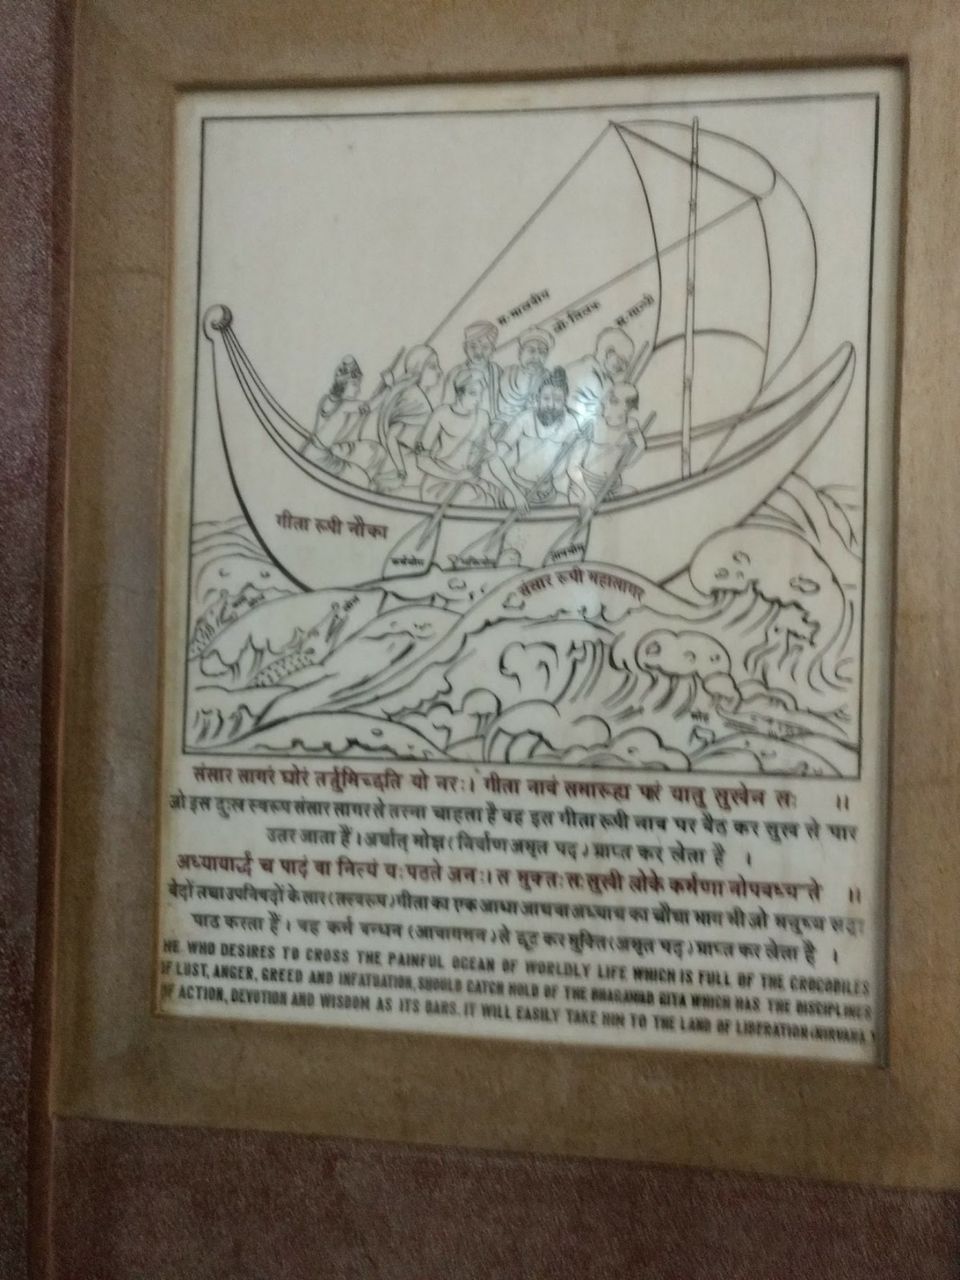 म॰ मालवीय
लो॰ तिलक
म॰ गान्धी
गीता रूपी नौका
कर्मयोग
भक्तियोग
ज्ञानयोग
संसार रूपी महासागर
संसार सागरं घोरं तर्तुमिच्छति यो नरः। गीता नावं समारूह्य परं यातु सुखेन सः ॥
जो इस दुःख स्वरूप संसार सागर से तरना चाहता है वह इस गीता रूपी नाव पर बैठ कर सुख से पार
उतर जाता है। अर्थात् मोक्ष (निर्वाण अमृत पद) प्राप्त कर लेता है ।
अध्यायार्द्धं च पादं वा नित्यं यः पठते जनः। स मुक्तः सः सुखी लोके कर्मणा नोपबध्यते ॥
वेदों तथा उपनिषदों के सार (तत्त्वरूप) गीता का एक आधा अथवा अध्याय का चौथा भाग भी जो मनुष्य सदा
पाठ करता है। वह कर्म बन्धन (आवागमन) से छूट कर मुक्ति (अमृत पद) प्राप्त कर लेता है ।
HE WHO DESIRES TO CROSS THE PAINFUL OCEAN OF WORLDLY LIFE WHICH IS FULL OF THE CROCODILES
OF LUST, ANGER, GREED AND INFATUATION, SHOULD CATCH HOLD OF THE BHAGAWAD GITA WHICH HAS THE DISCIPLINES
OF ACTION, DEVOTION AND WISDOM AS ITS OARS. IT WILL EASILY TAKE HIM TO THE LAND OF LIBERATION (NIRVANA.)